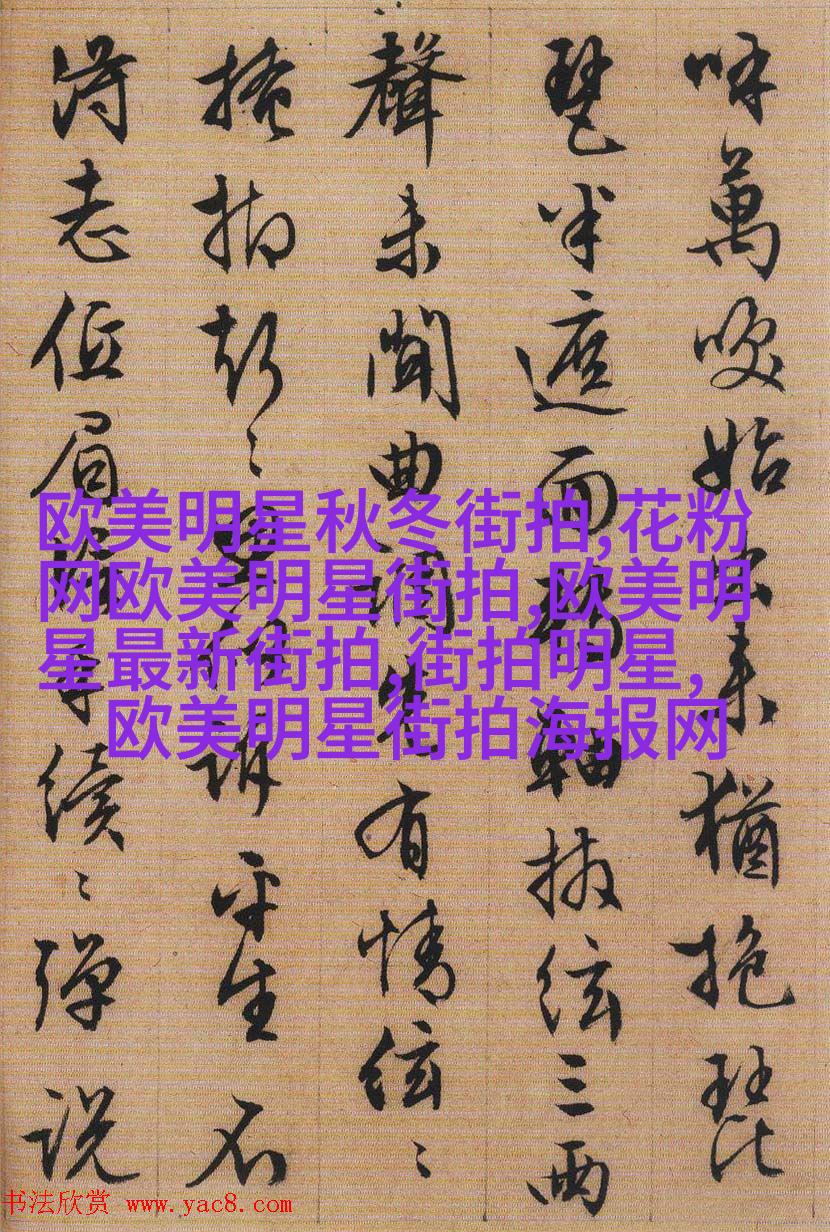 呼萬喚始出来猶抱琵
琶半遮面轉軸撥絃三兩
聲未聞曲調先有情絃〻
掩抑聲〻思似訴平生不
得志低眉信手續〻弹说
欧美明星秋冬街拍,花粉
网欧美明星街拍,欧美明
星最新街拍,街拍明星,
欧美明星街拍海报网
书法欣赏 www.yac8.com